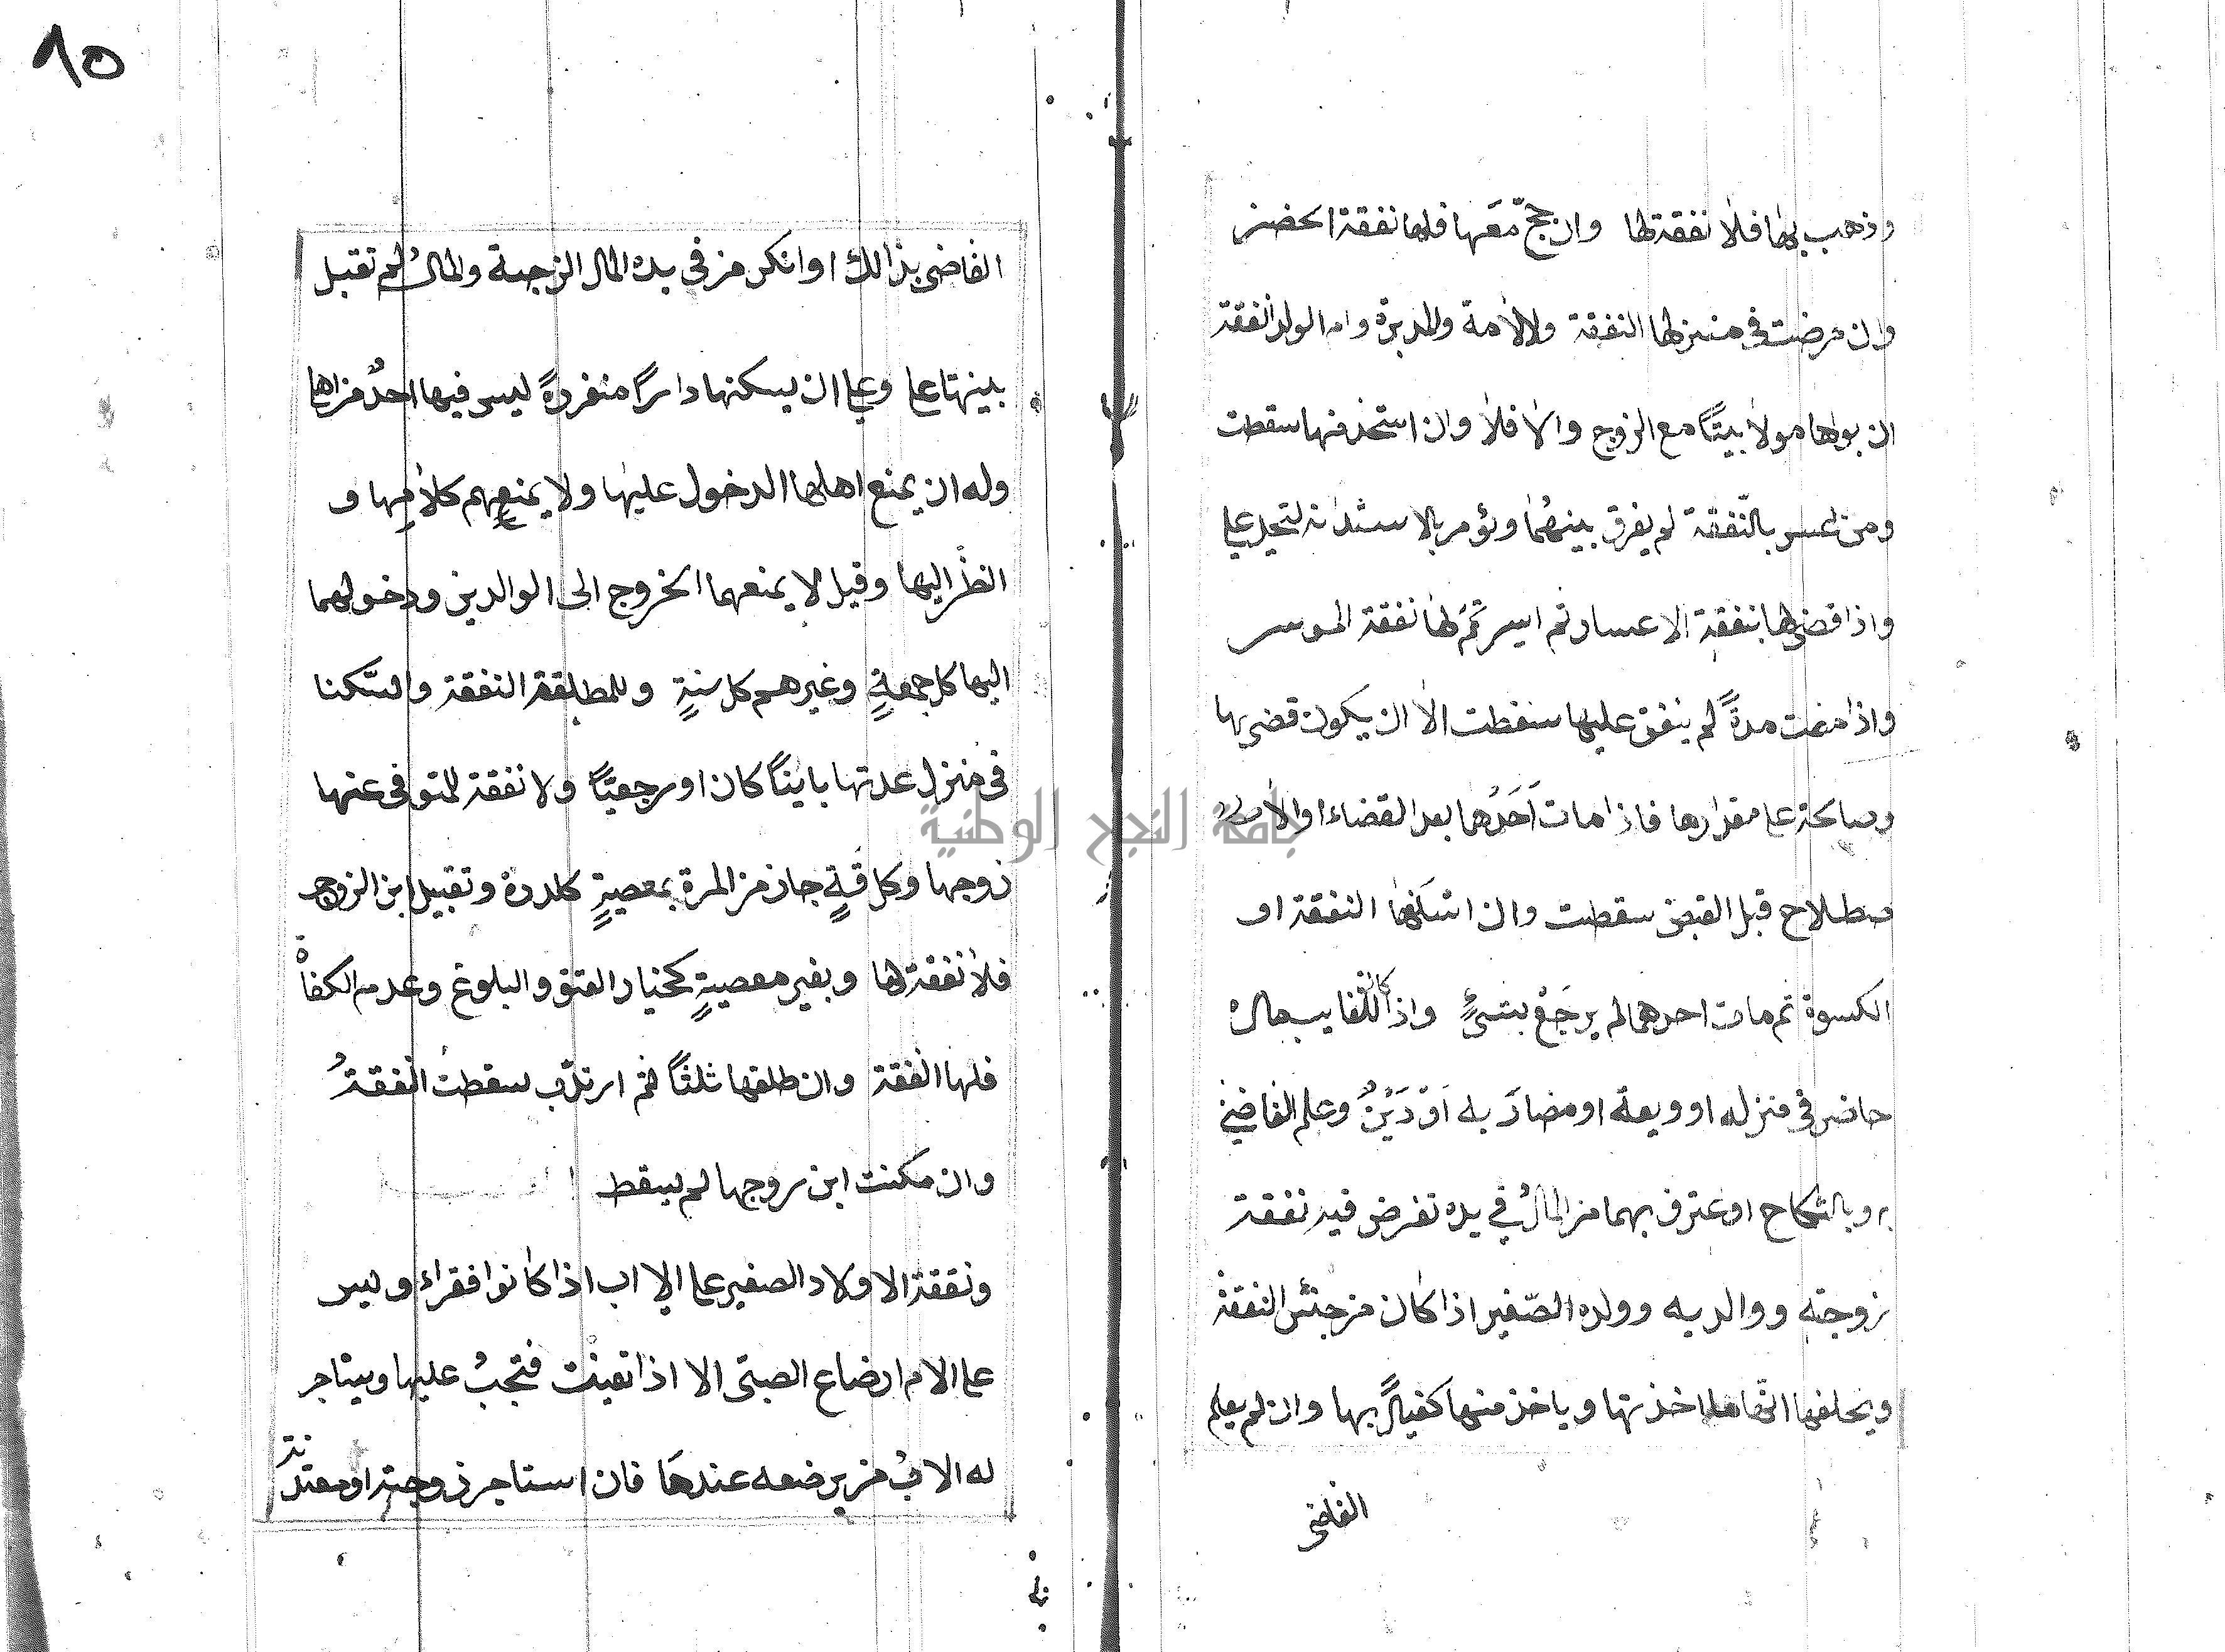 وذهب بها فلا نفقة لها وان حجّ مَعَها فلها نفقة الحضر
وان مرضت في منزلها النفقة وللامة والمدبرة وام الولد انفقة
ان بواها مولا بيتًا مع الزوج والا فلا وان استخدمنها سقطت
ومن اعسر بالنّفقة لم يفرق بينهُما وتؤمر بالاستدانة لتحيل علي
واذا قضى لها بنفقة الاعسار ثم ايسر تَمَ لها نفقة الموسر
واذا مضت مدةً لم ينفق عليها سقطت الا ان يكون قضى بها
وصالحة على مقدارها فاذا مات اَحَدُهما بعد القضاء او الا
صطلاح قبل القبض سقطت وان اسلفها النفقة او
الكسوة ثم مات احدهما لم يرجَعْ بشئٍ واذا كان للغايب مال
حاضر في منزله او ويعة او مضاربه اَوْ دَيْنٌ وعلم القاضي
به وبالنكاح او عترف بهما من المالُ في يده تفرض فيه نفقة
زوجته ووالديه وولده الصّغير اذا كان من جنس النفقة
ويحلفها انّها ما اخذتها وياخذ منها كفيلاً بها وان لم يعلم
القاضى
١٥
القاضى بذالك او انكر من في يده المال الزجية والمالُ لم تقبل
بينتها على وعلى ان يسكنها دارًا منفردةً ليس فيها احدٌ من اهلها
وله ان يمنع اهلها الدخول عليها ولا يمنعهم كلامها و
النظر اليها وقيل لا يمنعهما الخروج الى الوالدين ودخولهما
اليها كل جمعةٍ وغيرهم كل سنةٍ وللمطلقة النفقة والسّكنا
في منزل عدتها باينًا كان او رجعيًّا ولا نفقة للمتوفى عنها
زوجها وكل قةٍ جاز من المرة بمعصيةٍ كلدرة وتقبيل ابن الزوج
فلا نفقة لها وبغير معصيةٍ كخيار العتق والبلوغ وعدم الكفاْة
فلها الفقة وان طلقها ثلثًا ثم ارتدّت سقطت انفقةُ
وان مكنت ابن زوجها لم يسقط
ونفقة الاولاد الصغير على الااب اذا كانوا فقراء وليس
على الام ارضاع الصبيّ الا اذا تعينْت فتجبُ عليها ويستاجر
له الابُ من يرضعه عندهَا فان استاجر زوجته او معتدته
جامعة النجاح الوطنية